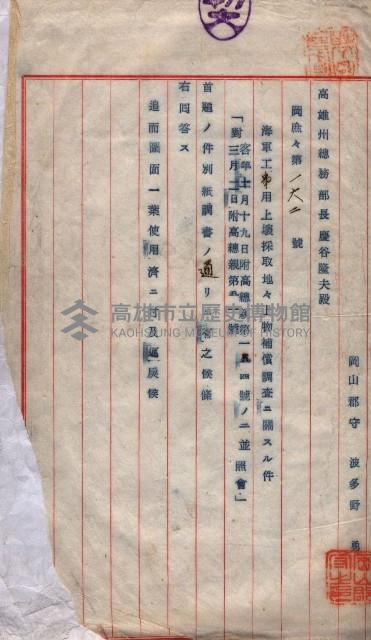 岡山郡守 波多野 勇
高雄州總務部長慶谷隆夫殿
岡庶々第一六二號
海軍工事用土壤採取地々上物補償調査ニ關スル件
「客年十月十九日附高總第一 四號ノ二並
對三月 日附高總親第 號 照會」
首題ノ件別紙調書ノ通リ 之候條
右回答ス
追而圖面一葉使用濟ニ付及返戾候
高雄市立歷史博物館
KAOHSIUNG MUSEUM OF HISTORY